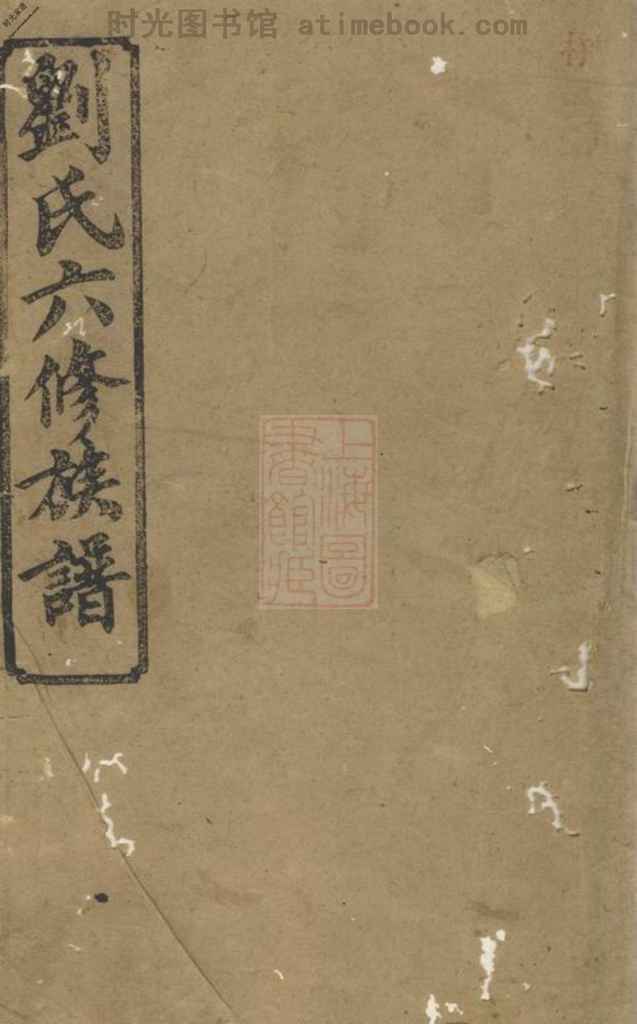 时光图书馆 atimebook.com
劉氏六修族譜
上海圖
書館藏